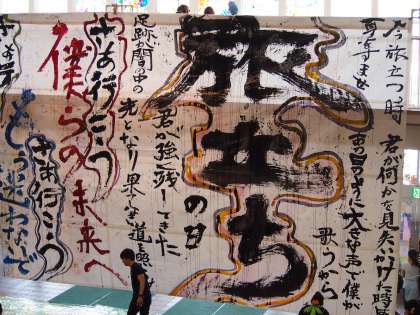 今旅立つ時
君が何かを見失いかけた時
あの日のように大きな声で僕が
歌うから
旅立ち
の日
君が強く残してきた
足跡が闇の中
光となり果てな
道を照
さあ行こう
僕らの未来へ
さあ行こう
どうか迷わないで